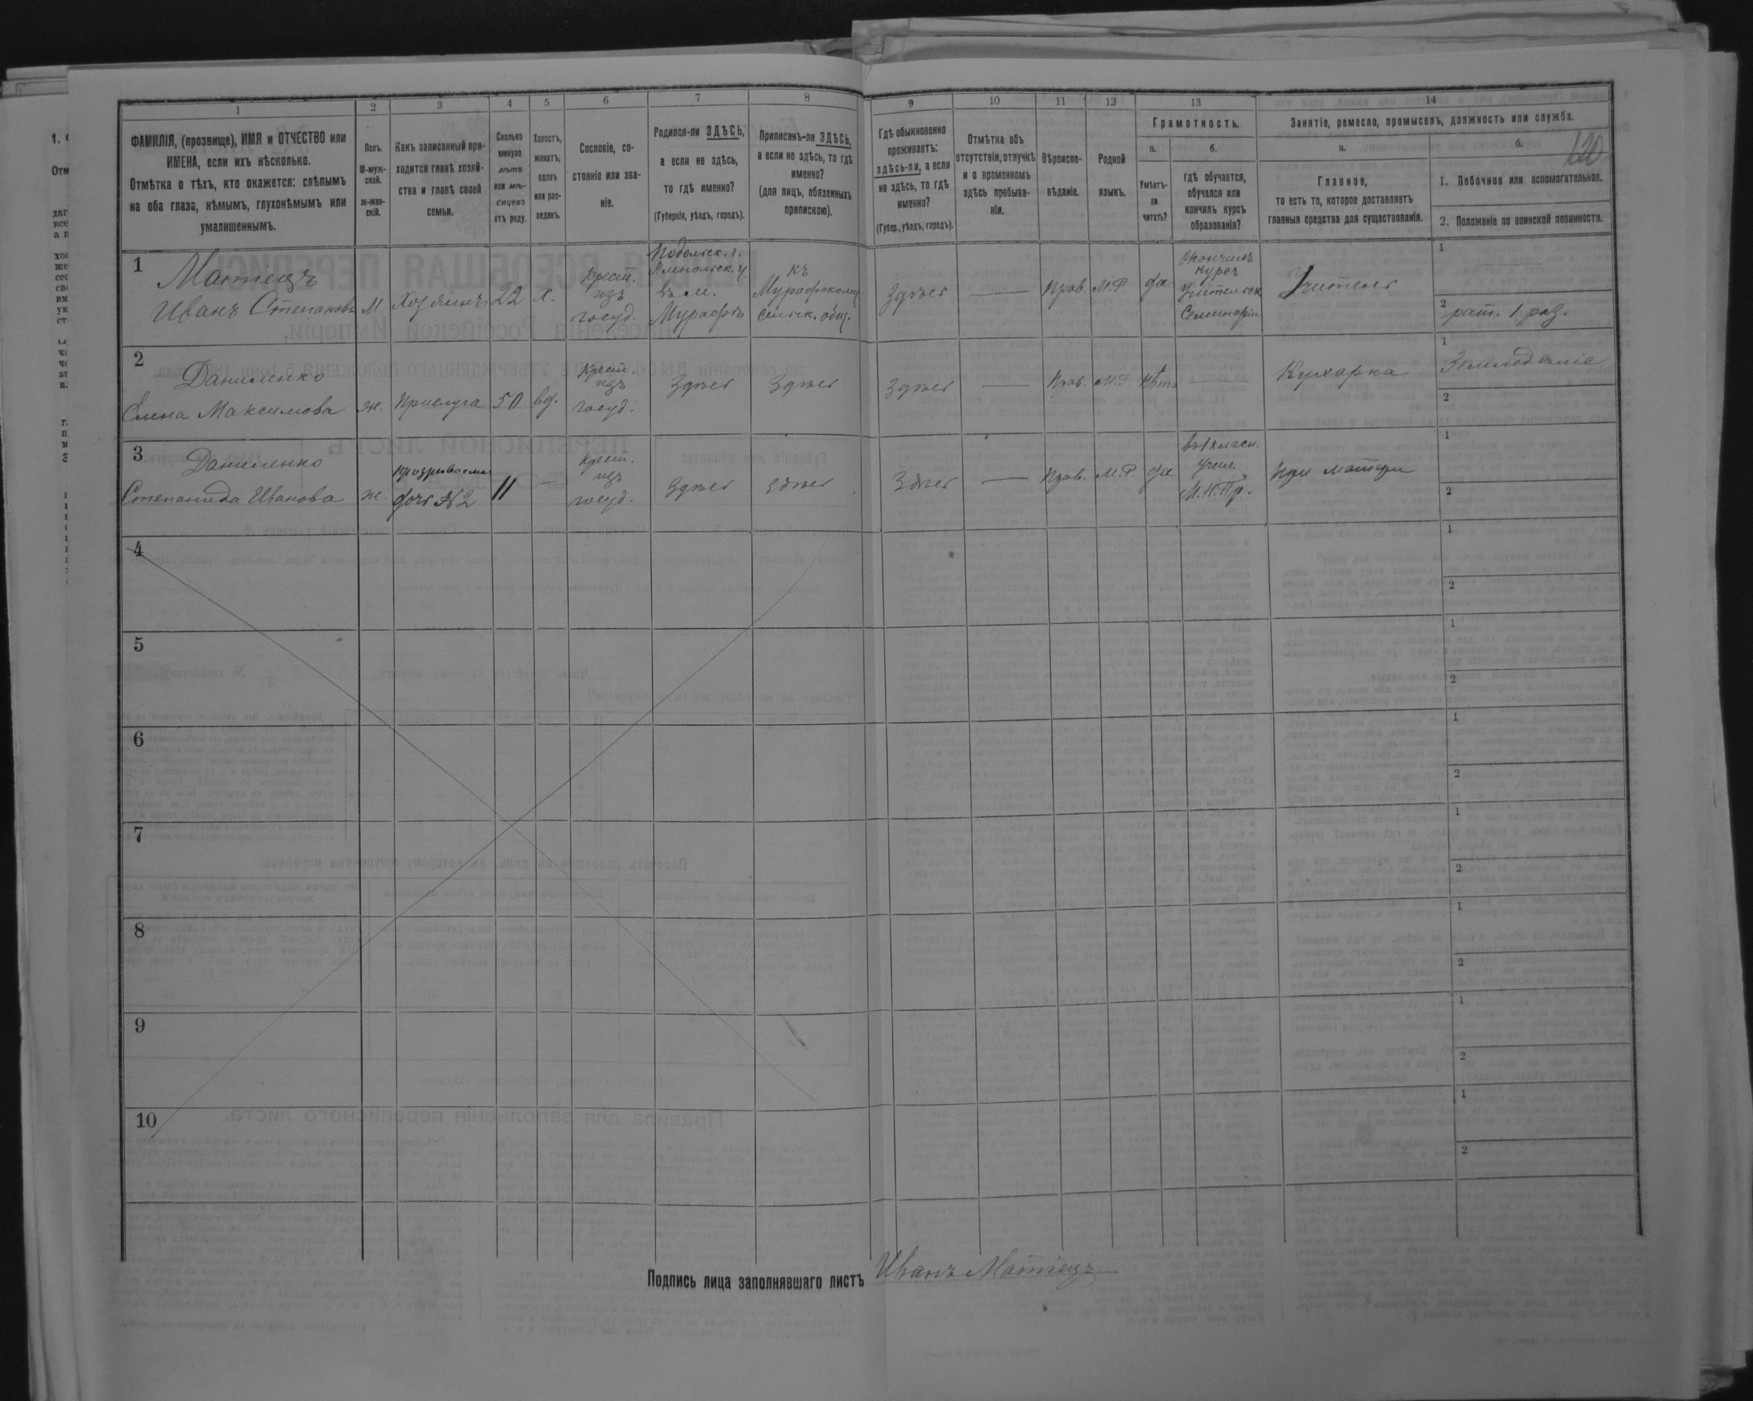 1 2 3 4 5 6 7 8 9 10 11 12 13 14
120
ФАМИЛІЯ, (прозвище), ИМЯ и ОТЧЕСТВО или
ИМЕНА, если ихъ нѣсколько.
Отмѣтка о тѣхъ, кто окажется: слѣпымъ
на оба глаза, нѣмымъ, глухонѣмымъ или
умалишеннымъ.
Полъ.
М-муж-
ской.
ж-жен-
скій.
Какъ записанный при-
ходится главѣ хозяй-
ства и главѣ своей
семьи.
Сколько
минуло
лѣтъ
или мѣ-
сяцевъ
отъ роду.
Холостъ,
женатъ,
вдовъ
или раз-
веденъ.
Сословіе, со-
стояніе или зва-
ніе.
Родился-ли ЗДѢСЬ,
а если не здѣсь,
то гдѣ именно?
(Губернія, уѣздъ, городъ).
Приписанъ-ли ЗДѢСЬ,
а если не здѣсь, то гдѣ
именно?
(для лицъ, обязанныхъ
припискою).
Гдѣ обыкновенно
проживаетъ:
здѣсь-ли, а если
не здѣсь, то гдѣ
именно?
(Губер., уѣздъ, городъ).
Отмѣтка объ
отсутствіи, отлучкѣ
и о временномъ
здѣсь пребыва-
ніи.
Вѣроиспо-
вѣданіе.
Родной
языкъ.
Грамотность.
а.
Умѣетъ-
ли
читать?
б.
гдѣ обучается,
обучался или
кончилъ курсъ
образованія?
Занятіе, ремесло, промыселъ, должность или служба.
а.
Главное,
то есть то, которое доставляетъ
главныя средства для существованія.
б.
1. Побочное или вспомогательное.
2. Положеніе по воинской повинности.
1
Матіецъ
Иванъ Степановъ
М.
Хозяинъ
22
х.
Крест.
изъ
госуд.
Подольск. г.
Ямпольск. у.
въ м.
Мурафѣ
къ
Мурафскому
сельск. общ.
Здѣсь
—
Прав.
М.Р.
да
Окончилъ
курсъ
Учительск.
Семинаріи
Учитель
1 —
2 рат. 1 раз.
2
Даниленко
Елена Максимова
ж.
Прислуга
50
вд.
Крест.
изъ
госуд.
Здѣсь
Здѣсь
Здѣсь
—
Прав.
М.Р.
нѣтъ
—
Кухарка
1 Земледѣліе
2
3
Даниленко
Степанида Иванова
ж.
дочь № 2
11
—
Крест.
изъ
госуд.
Здѣсь
Здѣсь
Здѣсь
—
Прав.
М.Р.
да
въ 1 класн.
учил.
М.Н.Пр.
при матери
1
2
4
1
2
5
1
2
6
1
2
7
1
2
8
1
2
9
1
2
10
1
2
Подпись лица заполнявшаго листъ Иванъ Матіецъ